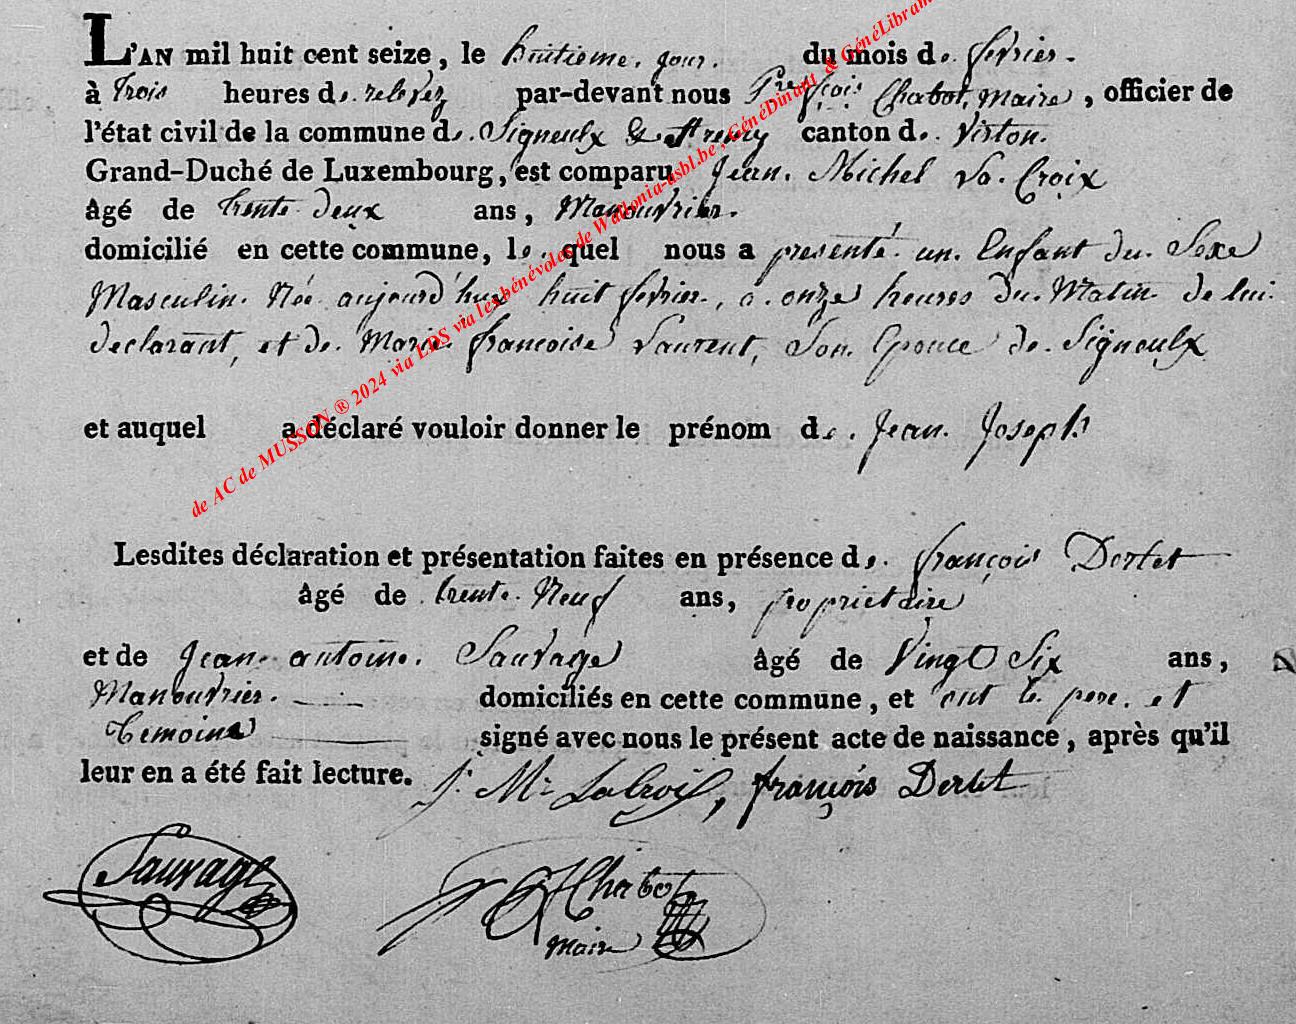 L'AN mil huit cent seize, le huitieme. jour. du mois de. fevrier.
à trois heures de. relevez par-devant nous Pre fçois Chabot, Maire, officier de
l'état civil de la commune de. Signeulx & canton de. Virton.
Grand-Duché de Luxembourg, est comparu Jean. Michel La. Croix
âgé de trente deux ans, Manouvrier.
domicilié en cette commune, le. quel nous a presenté. un. Enfant du. Sexe
Masculin. Née aujourd'hui huit fevrier., a. onze heures du. Matin. de lui.
declarant, et de. Marie. francoise Laurent, Son. Epouce de. Signeulx
et auquel a déclaré vouloir donner le prénom de. Jean. Joseph
Lesdites déclaration et présentation faites en présence de. françois Dertet
âgé de trente. Neuf ans, proprietaire
et de Jean. antoine. Sauvage âgé de Vingt Six ans,
Manouvrier. domiciliés en cette commune, et ont le pere. et
temoins signé avec nous le présent acte de naissance, après qu'il
leur en a été fait lecture. J. M. LaCroix, françois Dertet
Sauvage Chabot
Maire
de AC de MUSSON ® 2024 via LDS via les bénévoles de Wallonia-asbl.be, GénéDinant & GénéLibram